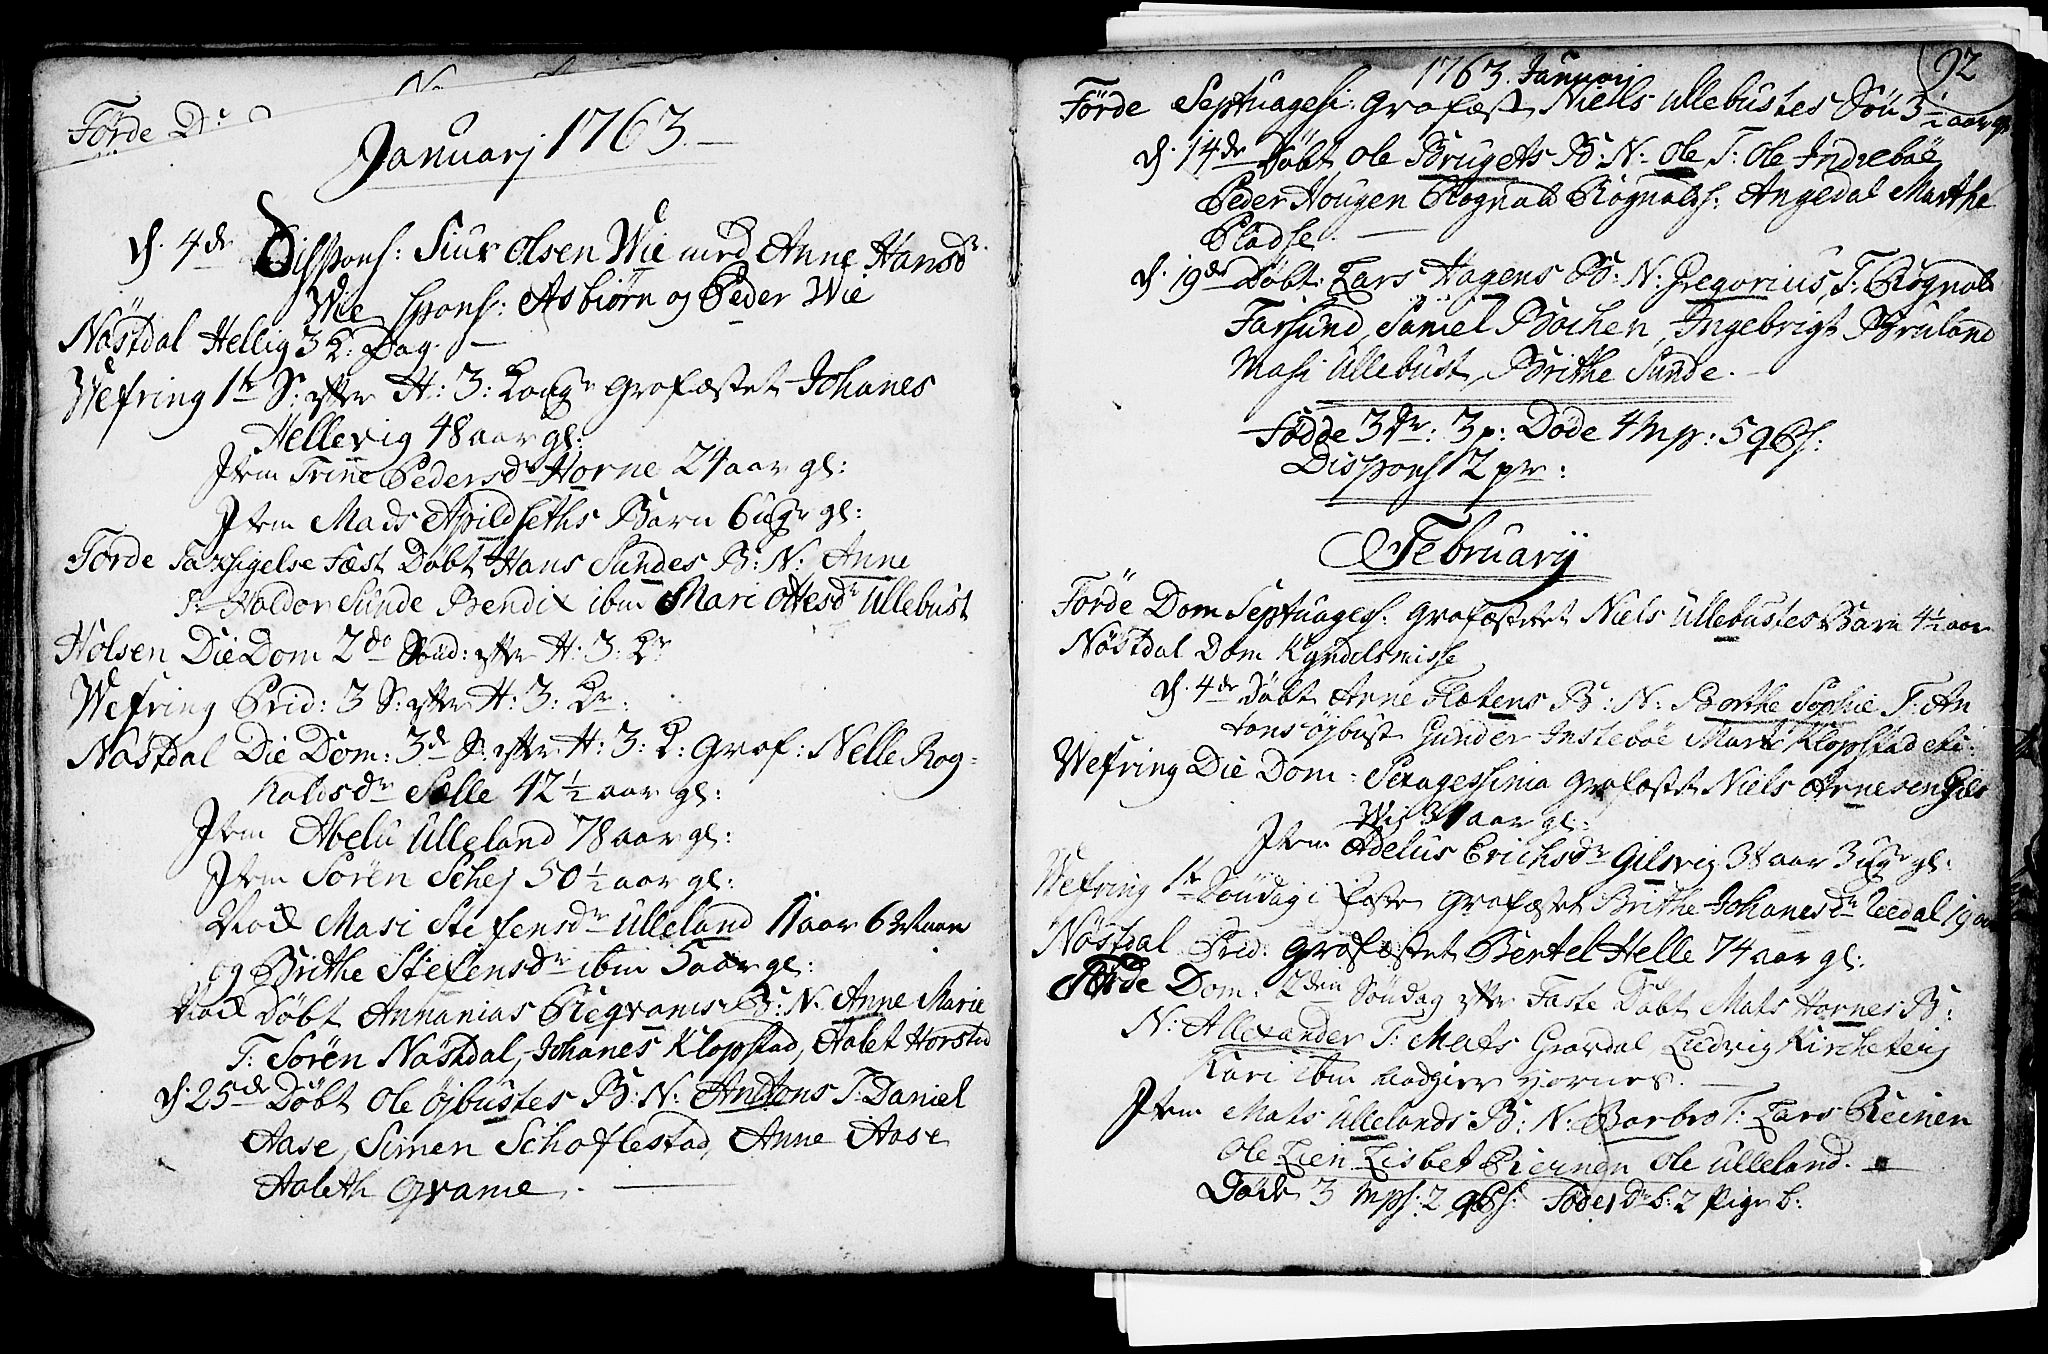 Förde
Januarj 1763.
d. 4de Dispons: Siur Olsen Wie med Anne Hansdr.
Wie spons: Asbiörn og Peder Wie
Nöstdal Hellig 3 K: Dag.
Wefring 1te S: efter H: 3: Kong: Grafæstet Johanes
Hellevig 48 aar gl:
Item Trine Pedersdr Horne 24 aar gl:
Item Mads Apildseths Barn 6 ug: gl:
Förde Taxsigelse Fæst Döbt Hans Sundes B: N: Anne
T: Haldor Sunde Bendix ibm Mari Ottesdr Ullebust
Holsen Die Dom 2de Sönd: efter H: 3: Kr
Wefring Prid: 3 S: efter H: 3: Kr:
Nöstdal Die Dom: 3de S: efter H: 3: K: Graf: Nelle Rog=
naldsdr Sælle 42½ aar gl:
Item Abelu Ulleland 78 aar gl:
Item Sören Schej 50½ aar gl:
Masi Stefensdr Ulleland 11 aar 6
og Brithe Stefensdr ibm 5 aar gl:
Döbt Annanias B: N: Anne Marie
T: Sören Nöstdal, Johanes Klopstad, Aalet Horstad
d. 25de Döbt Ole Öjbustes B: N: Anttons T: Daniel
Aase, Simen Schoflestad, Anne Aase
Aaleth Qvame.
92
1763. Januarj
Förde Septuagesi: Grafæst Niels Ullebustes Sön 3½ aar gl
d. 14de Döbt Ole B: N: Ole T: Ole Indreböe
Peder Hougen Rognald Rognalds: Angedal Marthe
Pladse.
d. 19de Döbt: Lars Hagens B: N: Gregorius, T: Rognald
Farsund, Samel Bochen, Ingebrigt Bruland
Masi Ullebust, Brithe Sunde.
Födde 3 dr: 3 p: Döde 4 mp: 5 qvPs:
Dispons 12 pr:
Februarij
Förde Dom Septuages: Grafæstet Niels Ullebustes Barn 4½ aar
Nöstdal Dom Kyndelsmisse
d. 4de Döbt Arne Flætens B: N: Borthe Sophie T: An
tons öjbust Gunder Insteböe Marte Klopstad etc:
Wefring Die Dom: Sexagessima Grafæstet Niels Arnesen Gils
wig 31 aar gl:
Item Adelus Erichsdr Gilsvig 34 aar 3 ug: gl:
Wefring 1te Söndag i Faste Grafæstet Brithe Johanesdr Leedal 19 aar
Nöstdal Prid: Grafæstet Bertel Helle 74 aar gl:
Förde Dom: 2den Söndag efter Faste Döbt Mats Hornes B:
N: Allexander T: Mats Gravdal, Ludvig Kircheteig
Kari ibm
Item Mats Ullelands B: N: Barbro T: Lars Reinen
Ole Lien Lisbet Ole Ulleland.
Döde 3 mps: 2 qvPs: Föde 1 Dr b: 2 Pige b: